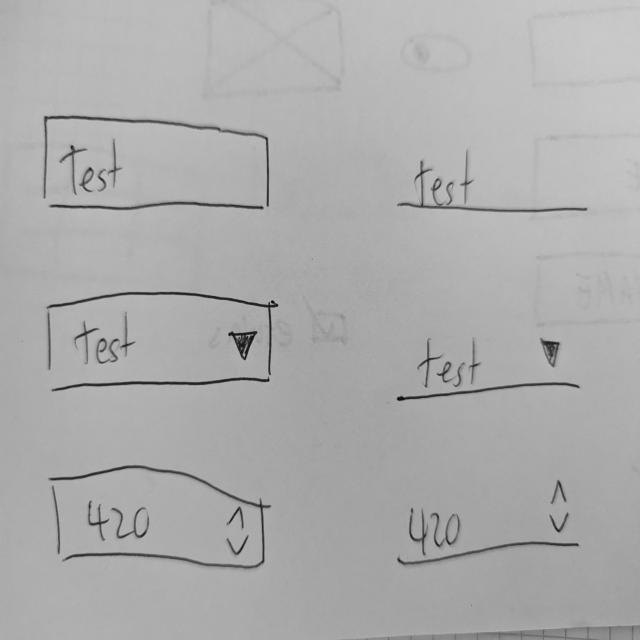 Test
test
test
test
420
420